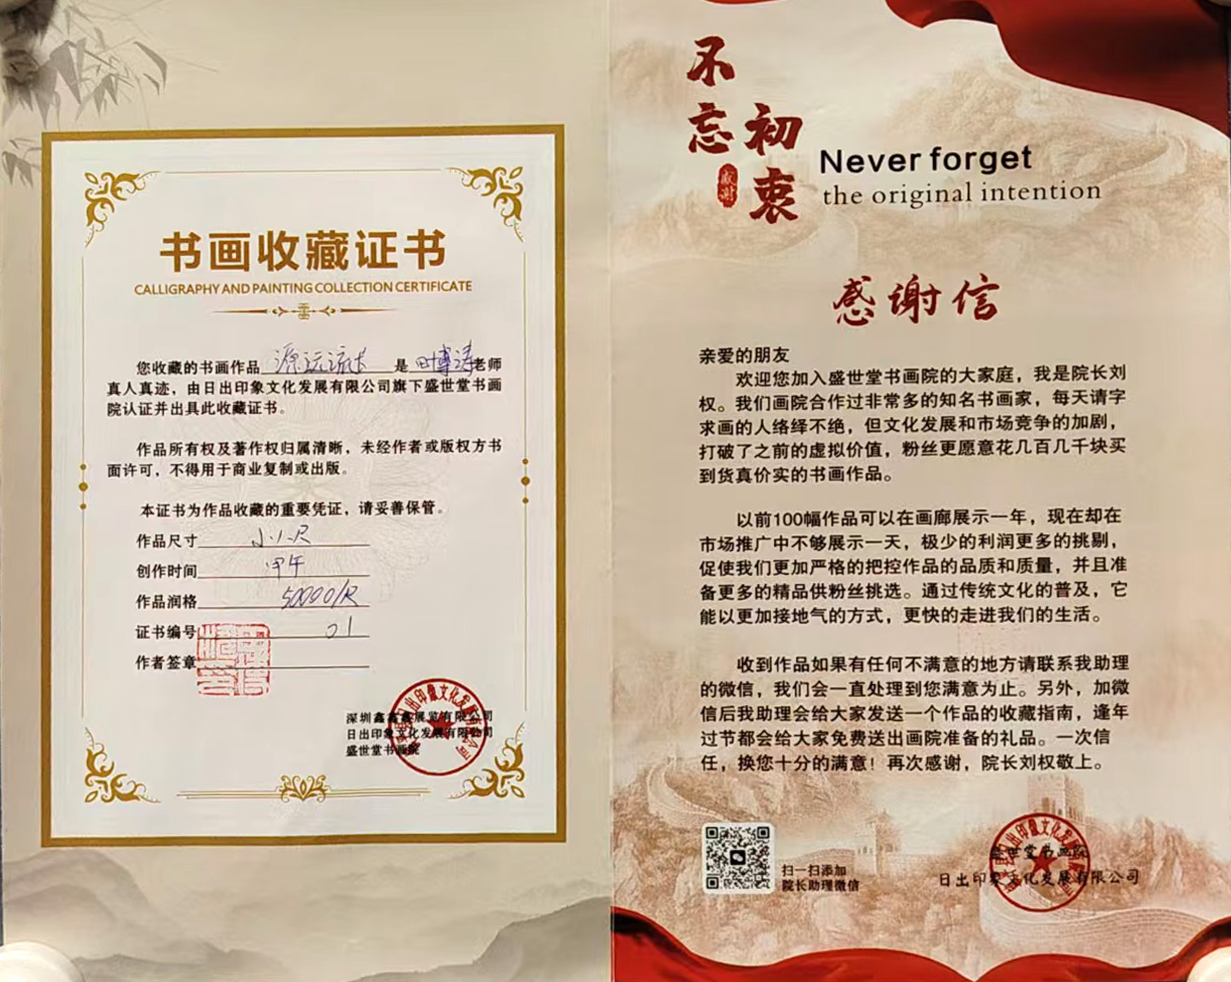 书画收藏证书
CALLIGRAPHY AND PAINTING COLLECTION CERTIFICATE
您收藏的书画作品 源远流长 是 叶博涛老师
真人真迹，由日出印象文化发展有限公司旗下盛世堂书画
院认证并出具此收藏证书。
作品所有权及著作权归属清晰，未经作者或版权方书
面许可，不得用于商业复制或出版。
本证书为作品收藏的重要凭证，请妥善保管。
作品尺寸
创作时间 甲午
作品润格 50000/尺
证书编号 01
作者签章
深圳鑫鑫鑫展览有限公司
日出印象文化发展有限公司
盛世堂书画院
不忘
初衷
感谢
Never forget
the original intention
感谢信
亲爱的朋友
欢迎您加入盛世堂书画院的大家庭，我是院长刘
权。我们画院合作过非常多的知名书画家，每天请字
求画的人络绎不绝，但文化发展和市场竞争的加剧，
打破了之前的虚拟价值，粉丝更愿意花几百几千块买
到货真价实的书画作品。
以前100幅作品可以在画廊展示一年，现在却在
市场推广中不够展示一天，极少的利润更多的挑剔，
促使我们更加严格的把控作品的品质和质量，并且准
备更多的精品供粉丝挑选。通过传统文化的普及，它
能以更加接地气的方式，更快的走进我们的生活。
收到作品如果有任何不满意的地方请联系我助理
的微信，我们会一直处理到您满意为止。另外，加微
信后我助理会给大家发送一个作品的收藏指南，逢年
过节都会给大家免费送出画院准备的礼品。一次信
任，换您十分的满意！再次感谢，院长刘权敬上。
扫一扫添加
院长助理微信
盛世堂书画院
日出印象文化发展有限公司